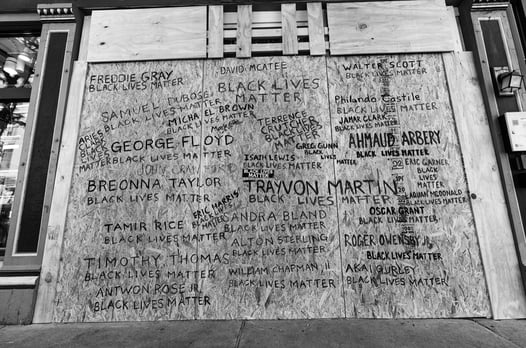 FREDDIE GRAY
BLACK LIVES MATTER
SAMUEL DUBOSE
BLACK LIVES MATTER
MICHAEL BROWN
BLACK LIVES MATTER
GEORGE FLOYD
BLACK LIVES MATTER
BREONNA TAYLOR
BLACK LIVES MATTER
TAMIR RICE
BLACK LIVES MATTER
TIMOTHY THOMAS
BLACK LIVES MATTER
ANTWON ROSE JR.
BLACK LIVES MATTER
DAVID MCATEE
BLACK LIVES
MATTER
TERRENCE
CRUTCHER
BLACK LIVES
MATTER
GREG GUNN
BLACK
LIVES
MATTER
ISAIAH LEWIS
BLACK LIVES
MATTER
TRAYVON MARTIN
BLACK LIVES MATTER
ERIC HARRIS
BLACK LIVES
MATTER
SANDRA BLAND
BLACK LIVES MATTER
ALTON STERLING
BLACK LIVES MATTER
WILLIAM CHAPMAN II
BLACK LIVES MATTER
WALTER SCOTT
BLACK LIVES MATTER
Philando Castile
BLACK LIVES MATTER
JAMAR CLARK
BLACK LIVES MATTER
AHMAUD ARBERY
BLACK LIVES MATTER
ERIC GARNER
BLACK
LIVES
MATTER
LAQUAN MCDONALD
BLACK LIVES MATTER
OSCAR GRANT
BLACK LIVES MATTER
ROGER OWENSBY JR.
BLACK LIVES MATTER
AKAI GURLEY
BLACK LIVES MATTER